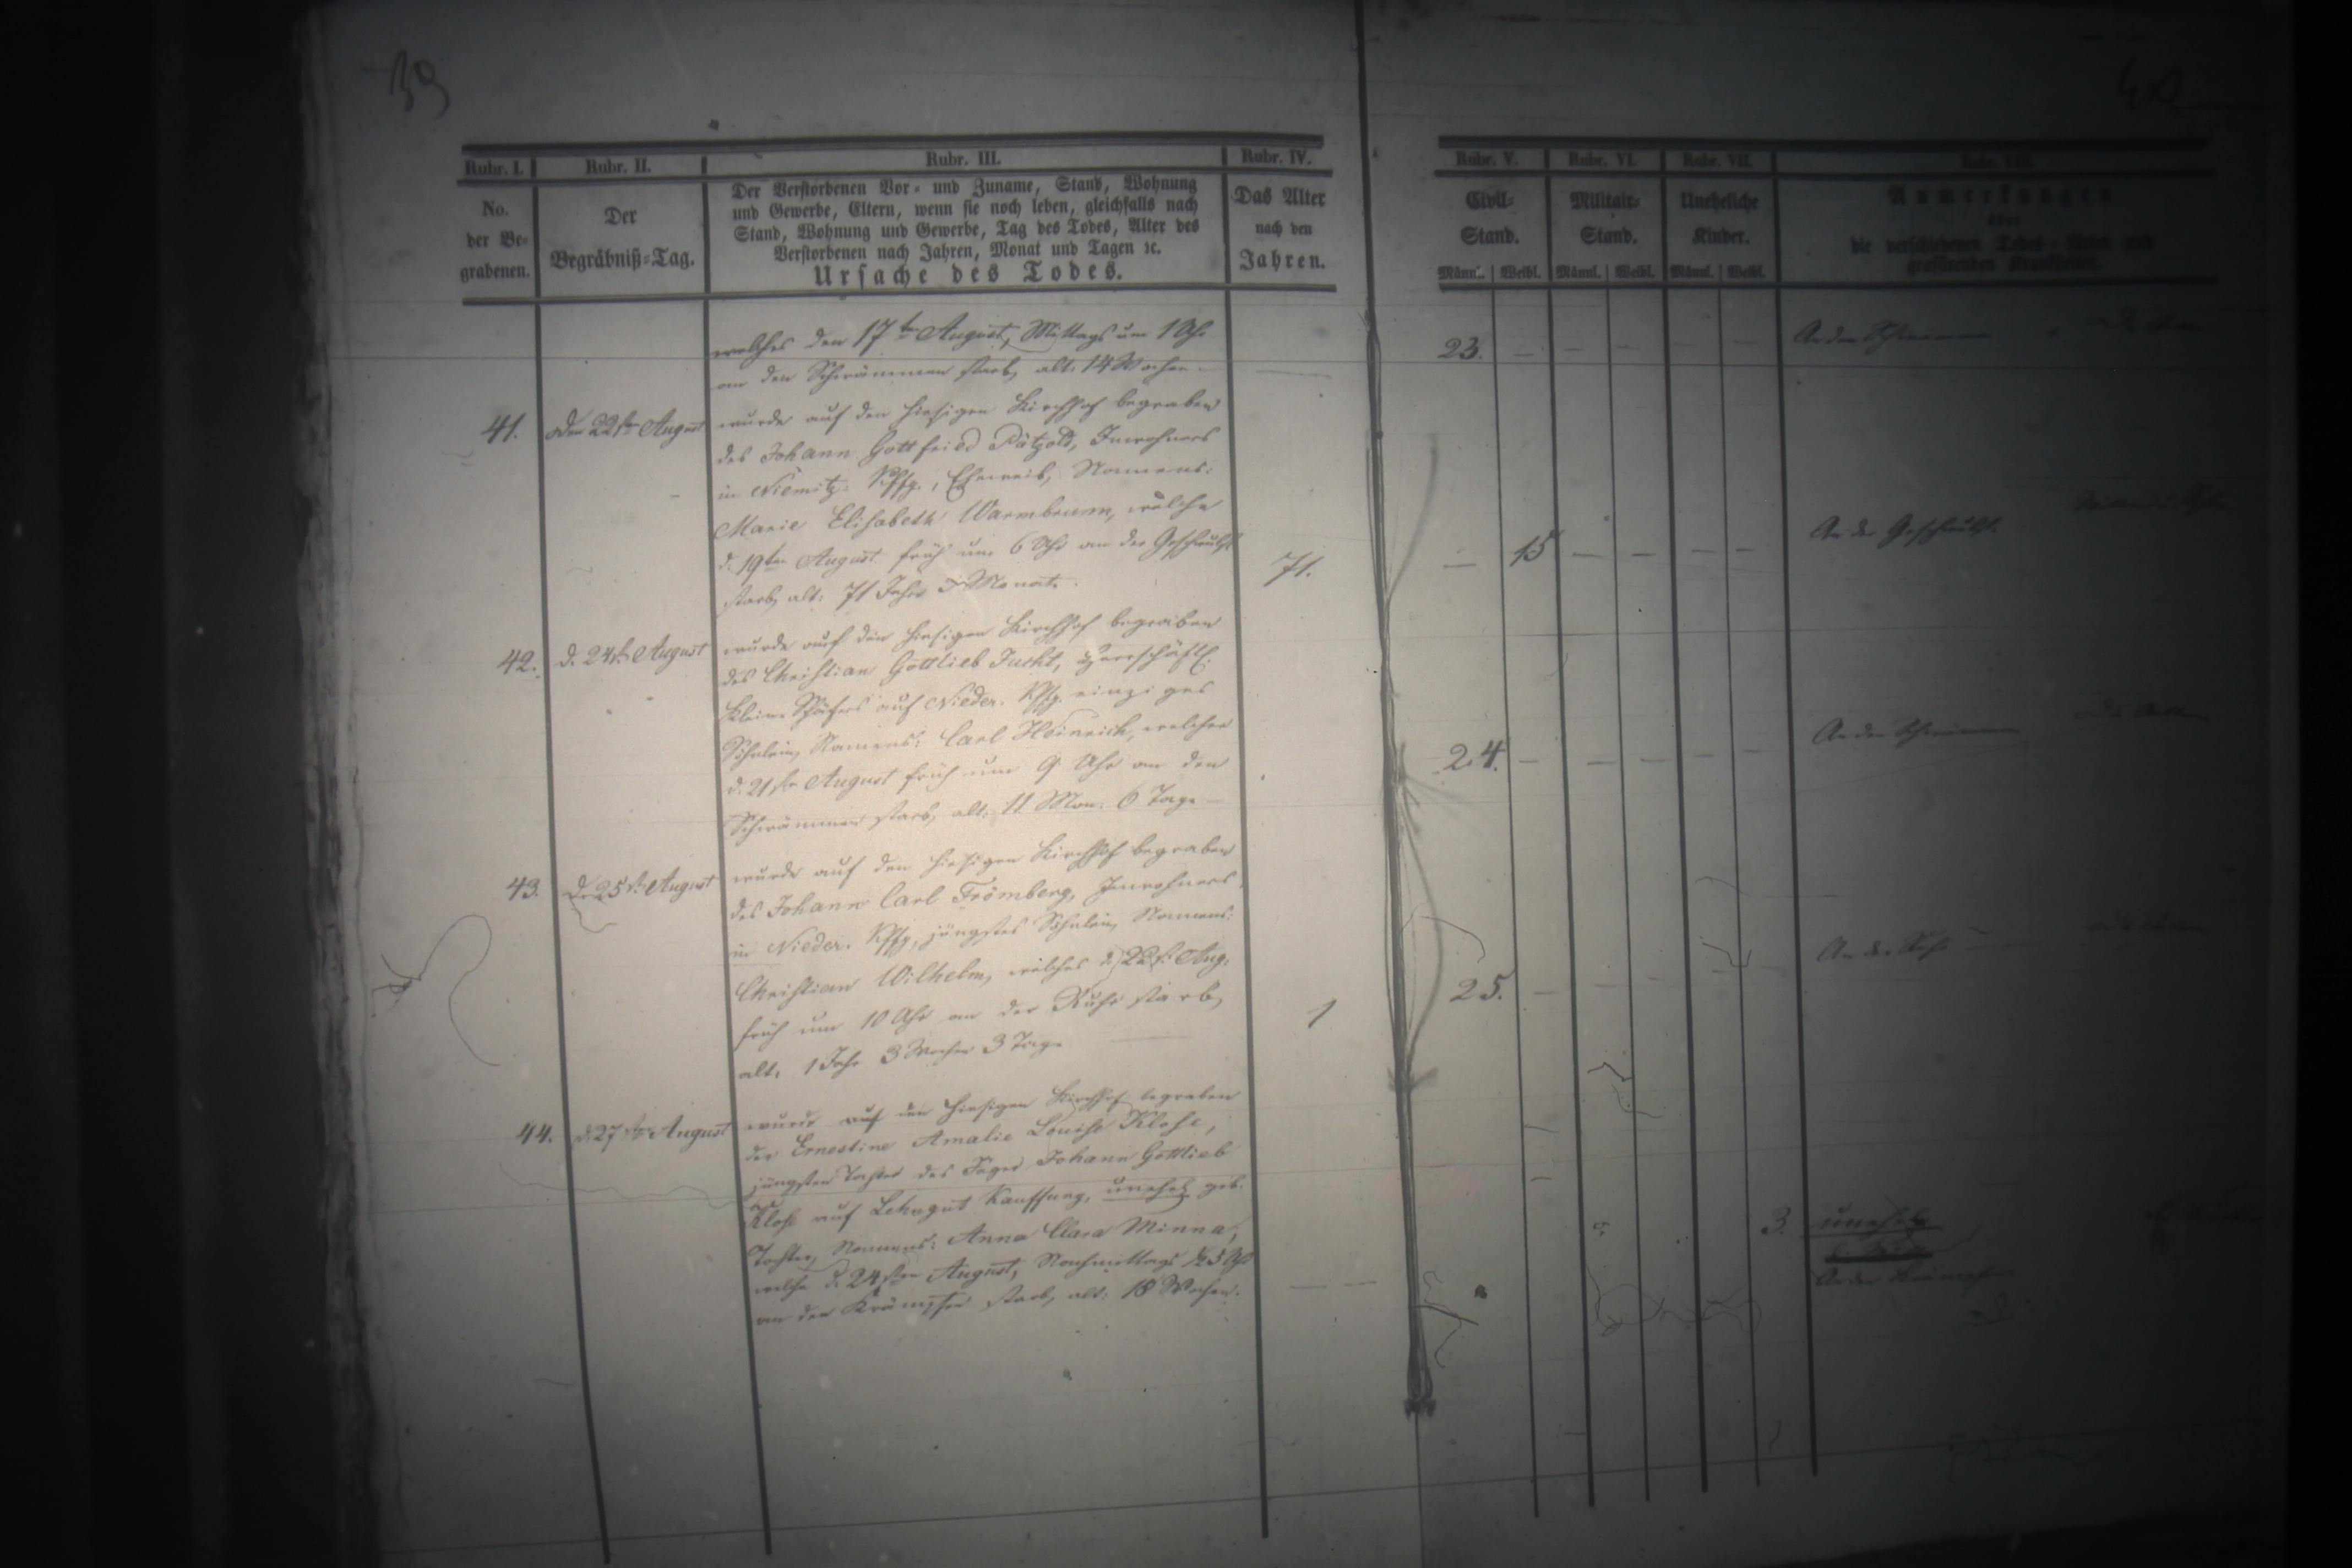 39
40
Rubr. I.
Rubr. II.
Rubr. III.
Rubr. IV.
Rubr. V.
Rubr. VI.
Rubr. VII.
Rubr. VIII.
No.
der Be-
grabenen.
Der
Begräbniß-Tag.
Der Verstorbenen Vor- und Zuname, Stand, Wohnung
und Gewerbe, Eltern, wenn sie noch leben, gleichfalls nach
Stand, Wohnung und Gewerbe, Tag des Todes, Alter des
Verstorbenen nach Jahren, Monat und Tagen ꝛc.
Ursache des Todes.
Das Alter
nach den
Jahren.
Civil-
Stand.
Männl. Weibl.
Militair-
Stand.
Männl. Weibl.
Uneheliche
Kinder.
Männl. Weibl.
Anmerkungen
über
die verschiedenen Todes-Arten und
grassirenden Krankheiten.
welches den 17ten August, Mittags um 1 Uhr
an den Schwämmen starb, alt: 14 Wochen
23.
41. Den 22sten August wurde auf den hiesigen Kirchhof begraben
des Johann Gottfried Pätzold, Inwohners
in Niemitz Kffg., Eheweib, Namens:
Marie Elisabeth Warmbrunn, welche
d. 19ten August früh um 6 Uhr an der Geschwulst
starb, alt: 71 Jahr Monat.
71.
15
An der Geschwulst.
42. d. 24st. August wurde auf den hiesigen Kirchhof begraben
des Christian Gottlieb Jucht, herrschaftl.
klein Schäfers auf Nieder. Kffg. einziges
Söhnlein, Namens: Carl Heinrich, welcher
d. 21sten August früh um 9 Uhr an den
Schwämmen starb, alt: 11 Mon. 6 Tage
24.
43. D. 25st. August wurde auf den hiesigen Kirchhof begraben
des Johann Carl Frömberg, Inwohners
in Nieder. Kffg, jüngstes Söhnlein, Namens:
Christian Wilhelm, welches d. 22st. Aug.
früh um 10 Uhr an der Ruhr starb,
alt: 1 Jahr 3 Wochen 3 Tage
1
25.
An der Ruhr
44. d. 27sten August wurde auf den hiesigen Kirchhof begraben
der Ernestine Amalie Louise Klose,
jüngsten Tochter des Jäger Johann Gottlieb
Klose auf Lehngut Kauffung, unehel. geb.
Tochter, Namens: Anna Clara Minna,
welche d. 24sten August, Nachmittags 1/2 5 Uhr
an den Krämpfen starb, alt: 18 Wochen.
3.
unehel.
An den Krämpfen